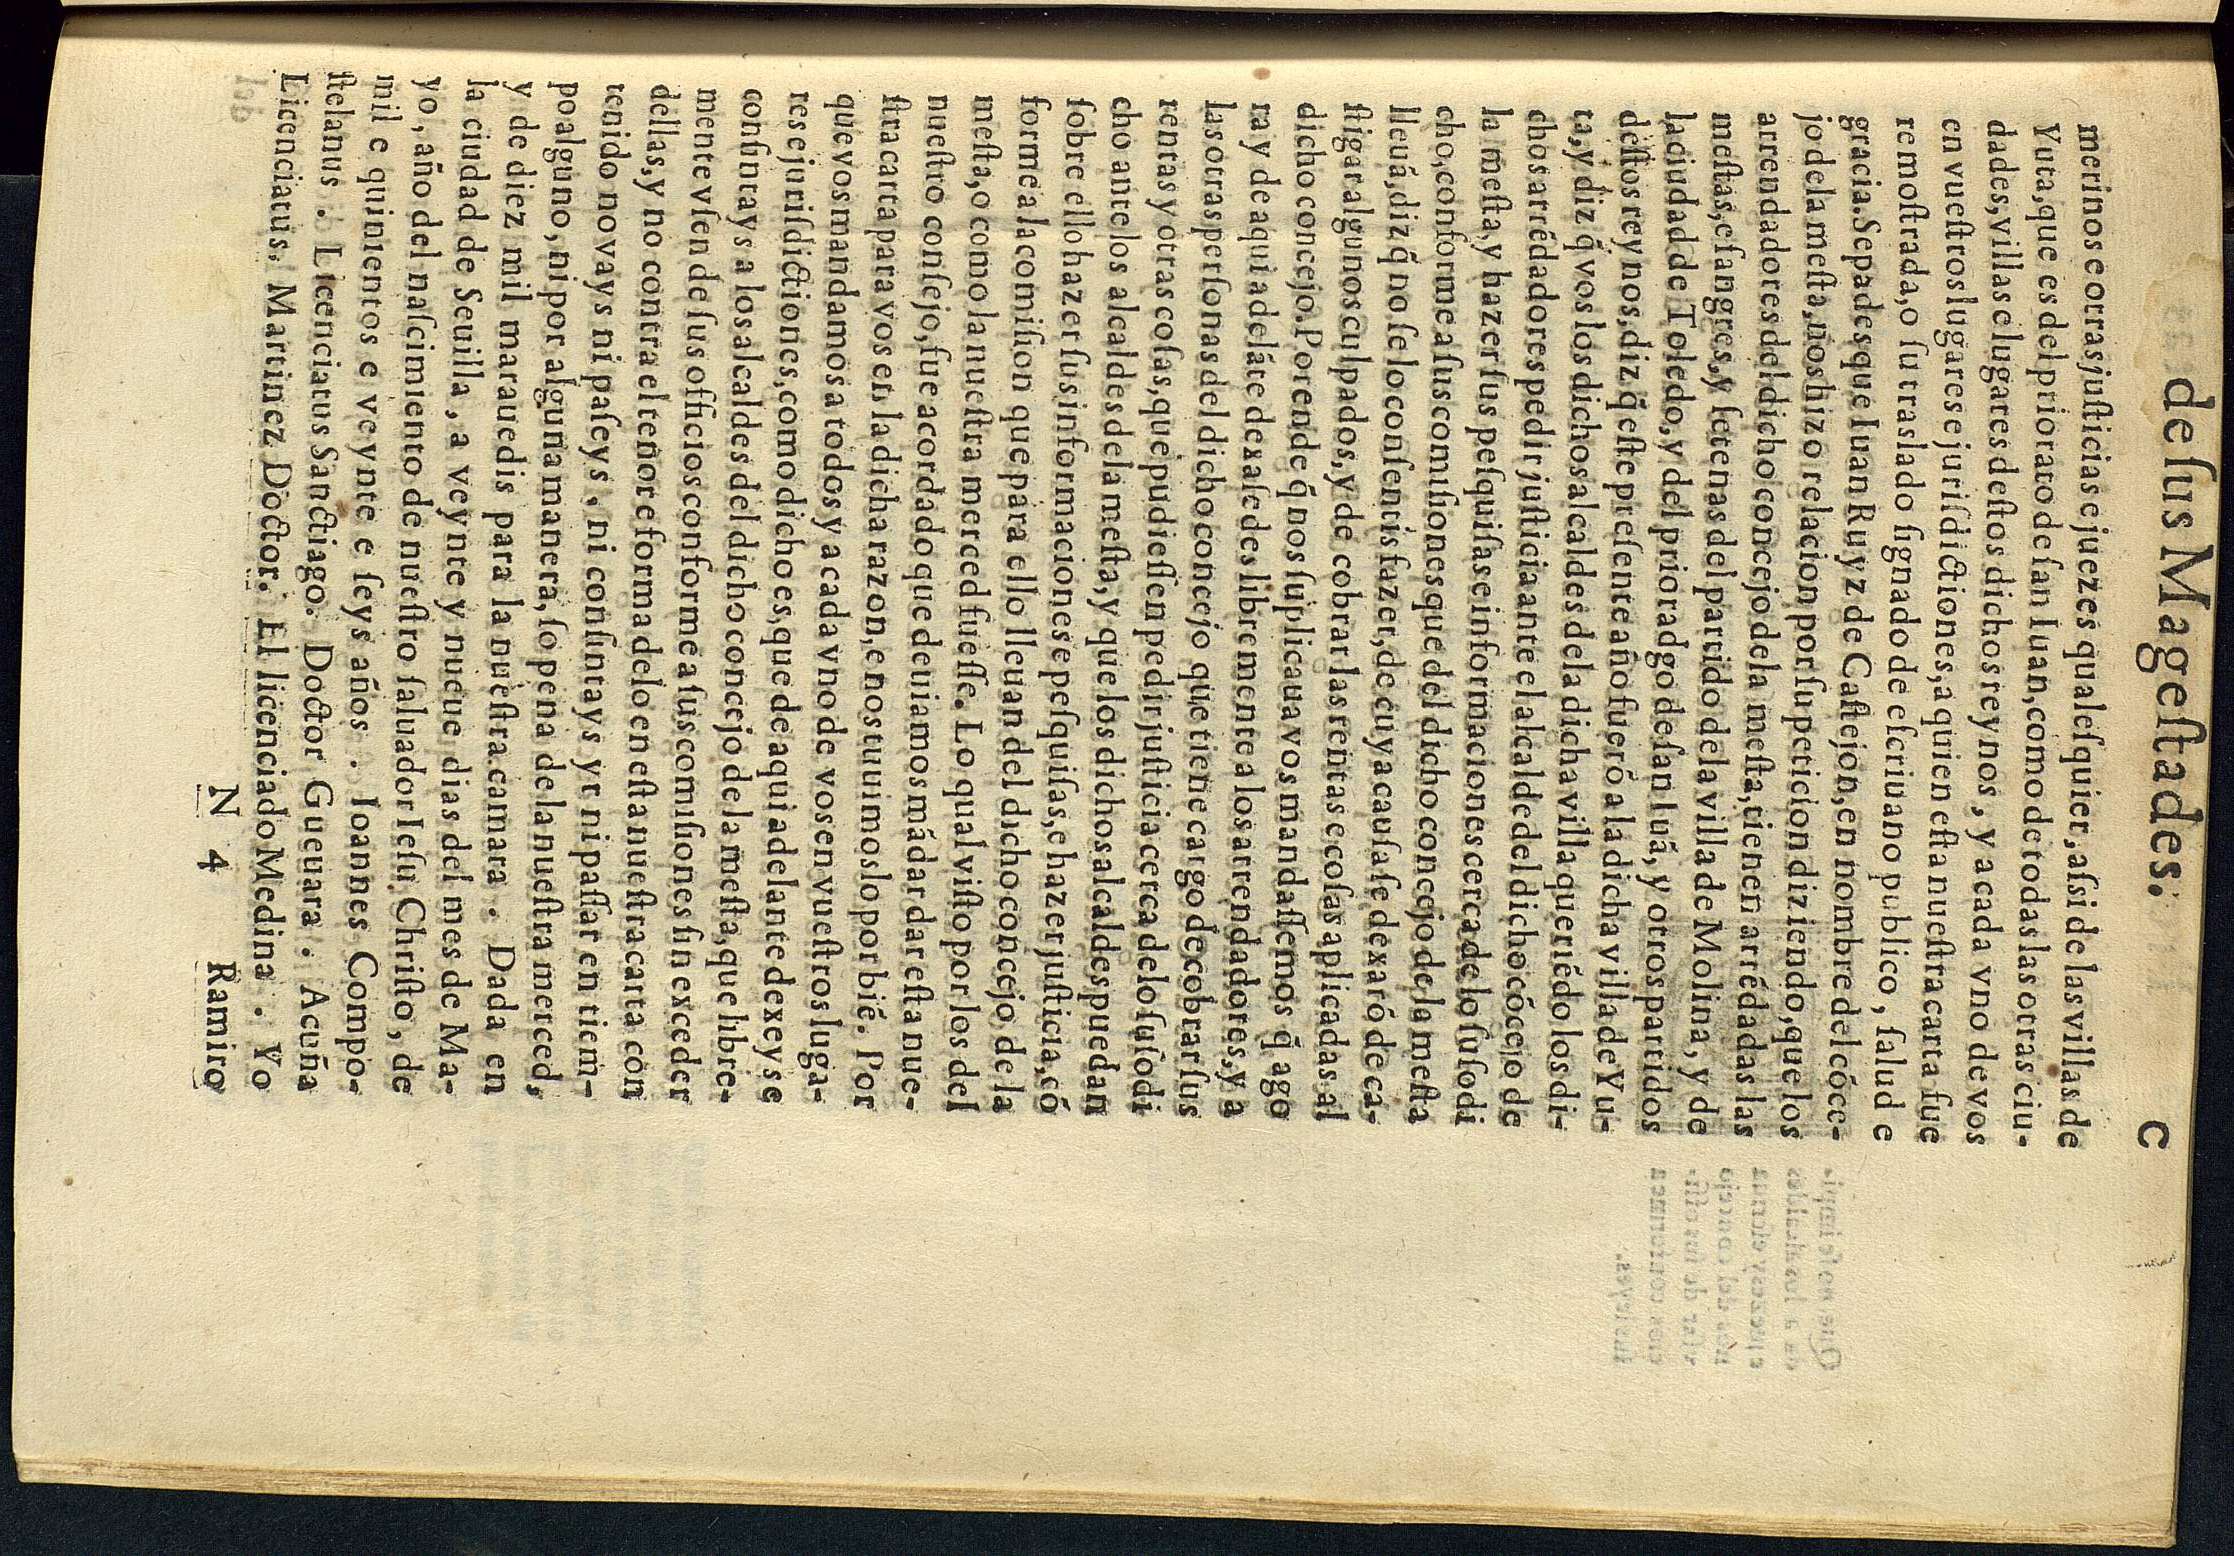 de ſus Mageſtades. C
merinos e otras juſticias e juezes qualeſquier, aſsi de las villas de
Yuta, que es del priorato de ſan Iuan, como de todas las otras ciu-
dades, villas e lugares deſtos dichos reynos, y a cada vno de vos
en vueſtros lugares e juriſdictiones, a quien eſta nueſtra carta fue
re moſtrada, o ſu traslado ſignado de eſcriuano publico, ſalud e
gracia. Sepades que Iuan Ruyz de Caſtejon, en nombre del cõce-
jo dela meſta, nos hizo relacion por ſu peticion diziendo, que los
arrendadores del dicho concejo dela meſta, tienen arrẽdadas las
meſtas, e ſangres, y ſetenas del partido dela villa de Molina, y de
la ciudad de Toledo, y del prioradgo de ſan Iuã, y otros partidos
deſtos reynos, diz q̃ eſte preſente año fuerõ a la dicha villa de Yu-
ta, y diz q̃ vos los dichos alcaldes dela dicha villa queriẽdo los di-
chos arrẽdadores pedir juſticia ante el alcalde del dicho cõcejo de
la meſta, y hazer ſus peſquiſas e informaciones cerca de lo ſuſo di
cho, conforme a ſus comiſiones que del dicho concejo de la meſta
lleuã, diz q̃ no ſe lo conſentis fazer, de cuya cauſa ſe dexarõ de ca-
ſtigar algunos culpados, y de cobrar las rentas e coſas aplicadas al
dicho concejo. Porende q̃ nos ſuplicaua vos mandaſſemos q̃ ago
ra y de aqui adelãte dexaſedes libremente a los arrendadores, y a
las otras perſonas del dicho concejo que tiene cargo de cobrar ſus
rentas y otras coſas, que pudieſſen pedir juſticia cerca de lo ſuſo di
cho ante los alcaldes de la meſta, y que los dichos alcaldes puedan
ſobre ello hazer ſus informaciones e peſquiſas, e hazer juſticia, cõ
forme a la comiſion que para ello lleuan del dicho concejo de la
meſta, o como la nueſtra merced fueſſe. Lo qual viſto por los del
nueſtro conſejo, fue acordado que deuiamos mãdar dar eſta nue-
ſtra carta para vos en la dicha razon, e nos tuuimoslo por biẽ. Por
que vos mandamos a todos y a cada vno de vos en vueſtros luga-
res e juriſdictiones, como dicho es, que de aqui adelante dexeys e
conſintays a los alcaldes del dicho concejo de la meſta, que libre-
mente vſen de ſus officios conforme a ſus comiſiones ſin exceder
dellas, y no contra el tenor e forma delo en eſta nueſtra carta con
tenido no vays ni paſeys, ni conſintays yr ni paſſar en tiem-
po alguno, ni por alguna manera, ſo pena de la nueſtra merced,
y de diez mil marauedis para la nueſtra camara. Dada en
la ciudad de Seuilla, a veynte y nueue dias del mes de Ma-
yo, año del naſcimiento de nueſtro ſaluador Ieſu Chriſto, de
mil e quinientos e veynte e ſeys años. Ioannes Compo-
ſtelanus. Licenciatus Sanctiago. Doctor Gueuara. Acuña
Licenciatus. Martinez Doctor. El licenciado Medina. Yo
N 4 Ramiro